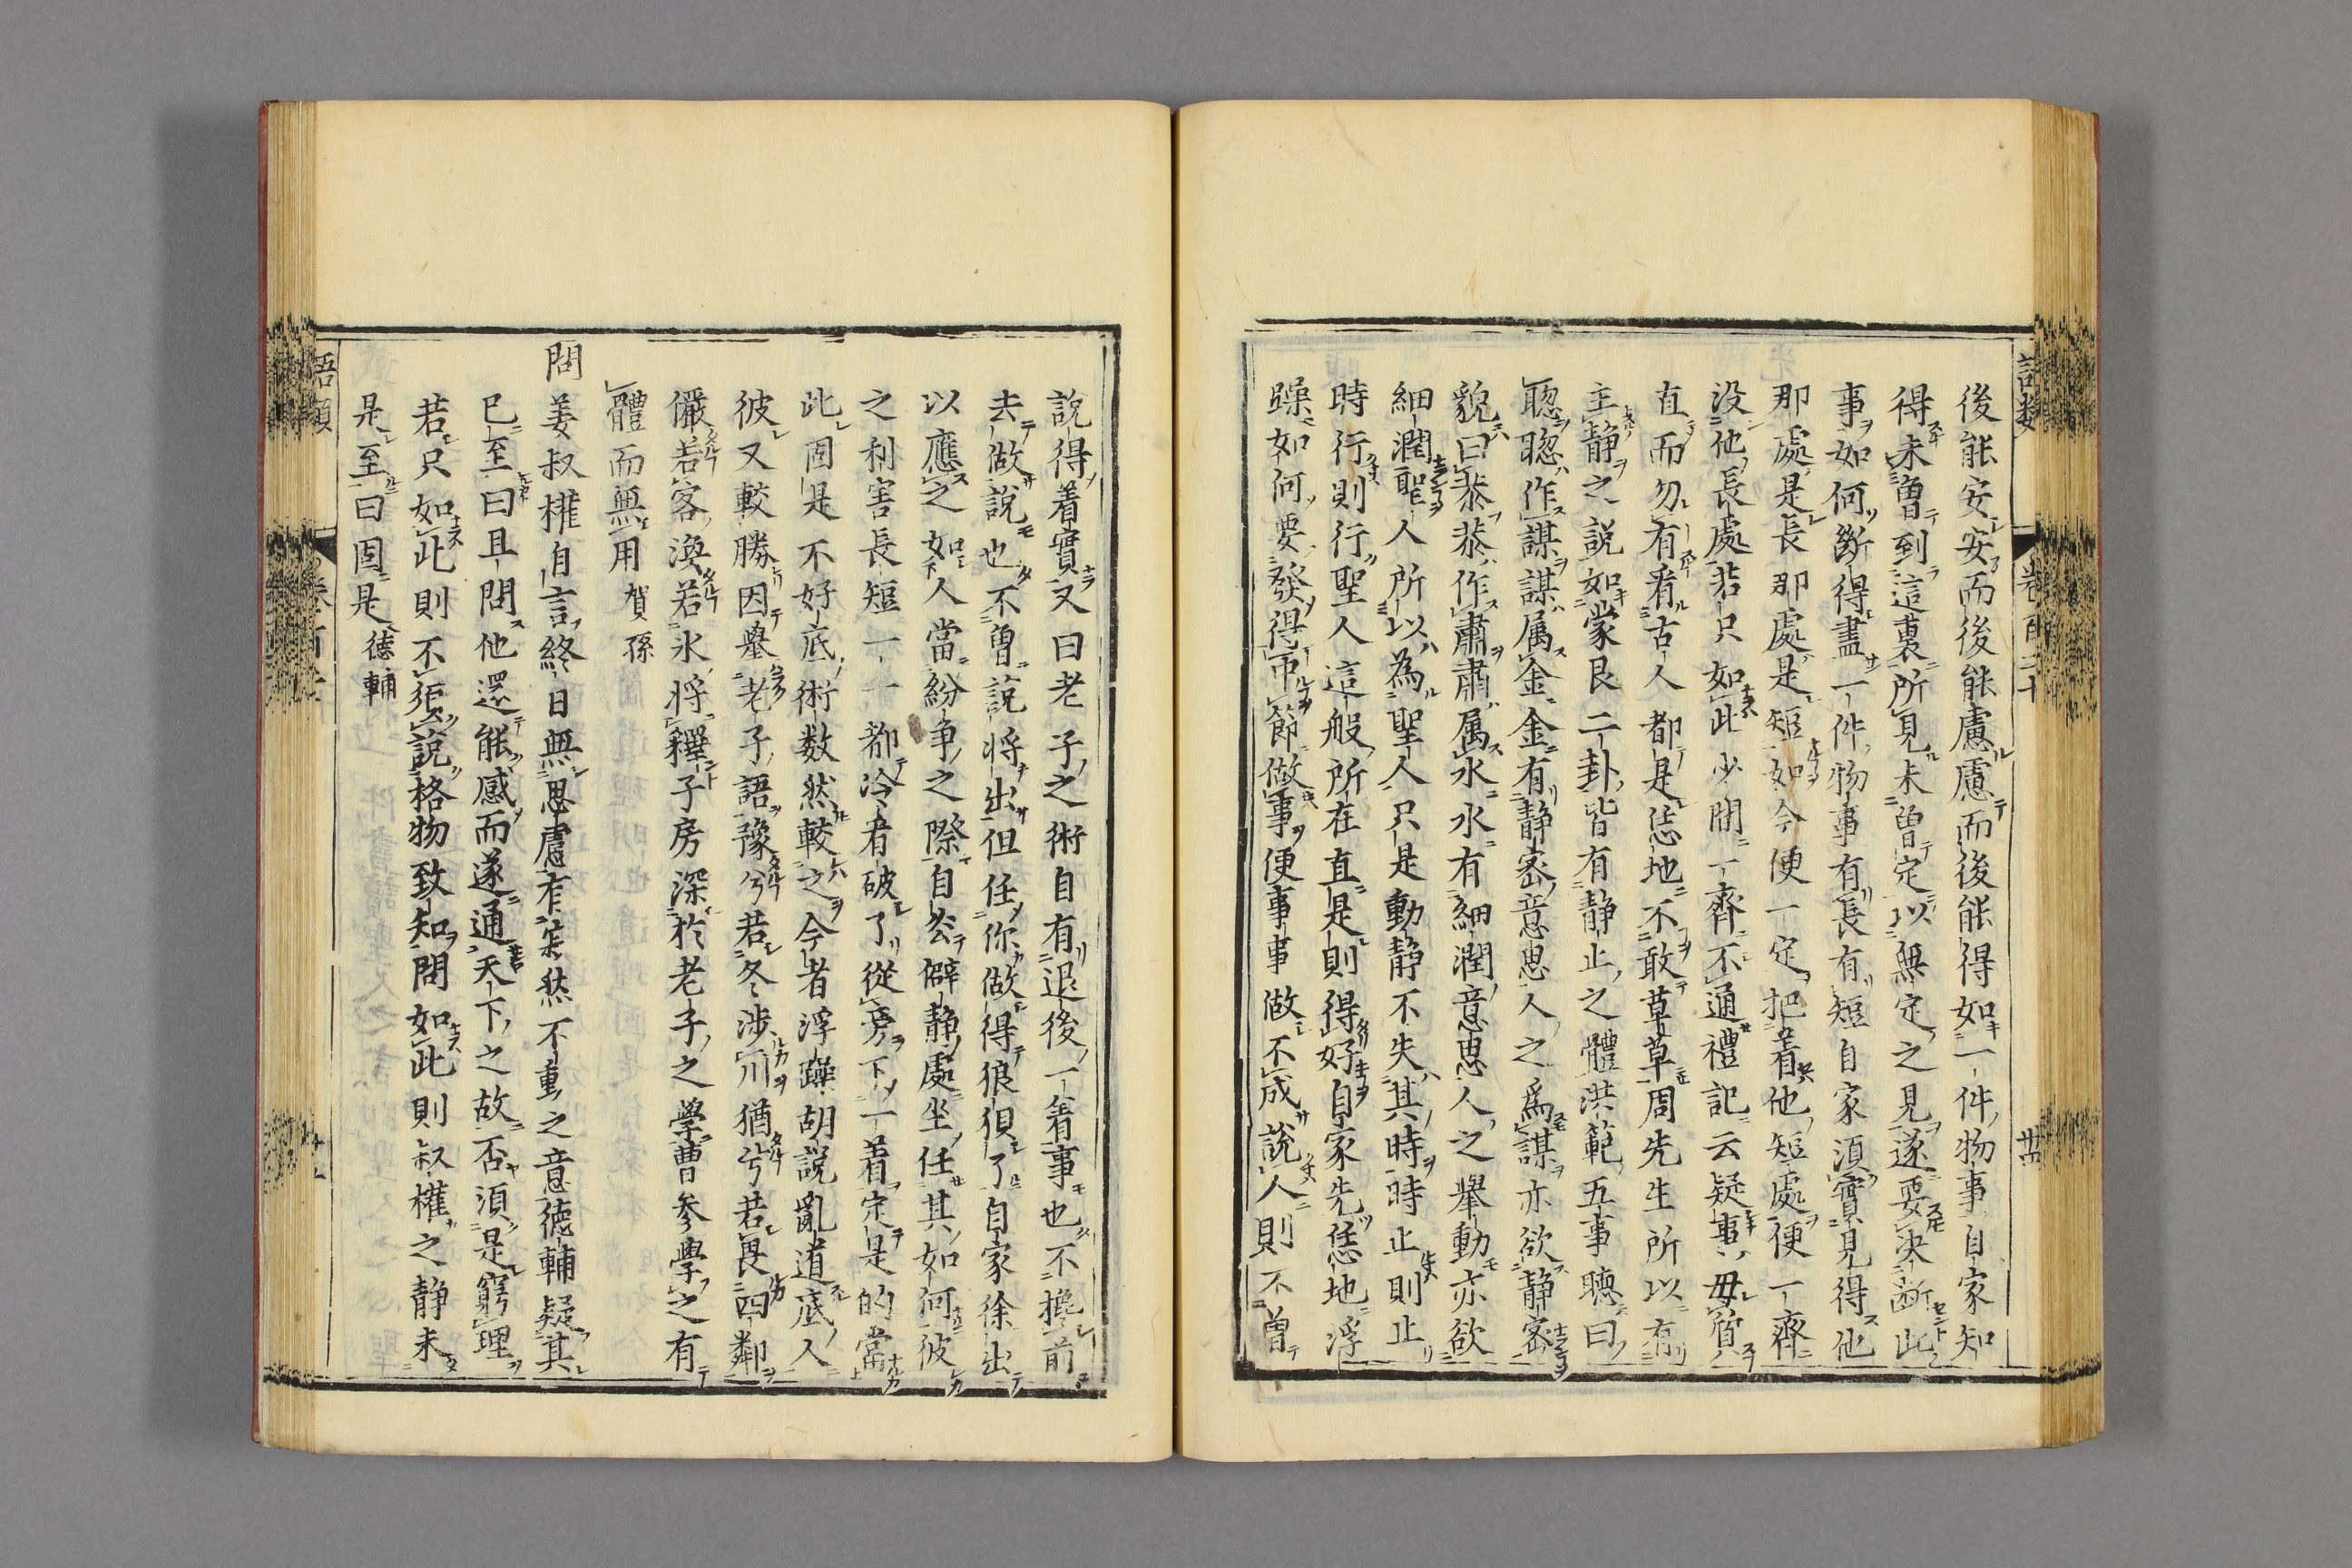 後能安安而後能慮慮而後能得如一件物事自家知
得未曽到這裏所見未曽定以無定之見遂要决断此
事如何断得盡一件物事有長有短自家湏實見得他
那處是長那處是短如今便一定把着他短處便一齊
没他長處若只如此少間一齊不通禮記云疑事毋質
直而勿有看古人都是恁地不敢草草周先生所以有
主静之説如蒙艮二卦皆有静止之體洪範五事聴曰
聡聡作謀謀属金金有静宻意思人之為謀亦欲静宻
貌曰恭恭作肅肅属水水有細潤意思人之舉動亦欲
細潤聖人所以為聖人只是動静不失其時時止則止
時行則行聖人這般所在直是則得好自家先恁地浮
躁如何要發得中節做事便事事做不成説人則不曽
説得着實又曰老子之術自有退後一着事也不攙前
去做説也不曽説将出但任你做得狼狽了自家徐出
以應之如人當紛争之際自去僻静處坐任其如何彼
之利害長短一一都冷看破了從旁下一着定是的當
此固是不好底術数然較之今者浮躁胡説亂道底人
彼又較勝因舉老子語豫兮若冬涉川猶兮若畏四鄰
儼若客渙若氷将釋子房深於老子之學曹参學之有
體而無用 賀孫
問姜叔權自言終日無思慮有寂然不動之意徳輔疑其
已至曰且問他還能感而遂通天下之故否湏是窮理
若只如此則不湏説格物致知問如此則叔權之静未
是至曰固是 徳輔
語類
卷百二十
卅四
語類